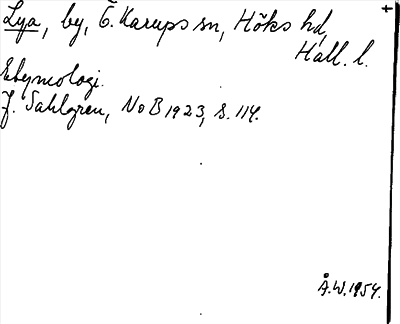 Lya, by, Ö. Karups sn, Höks hd,
Hall. l.
Etymologi.
J. Sahlgren, NoB 1923, s. 114.
Å.W. 1954.